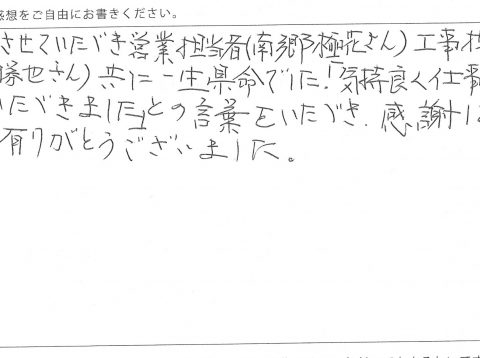 感想をご自由にお書きください。
させていただき営業担当者(南郷極花さん)工事担
勝也さん)共に一生県命でした!「気持良く仕事
いただきました」との言葉をいただき、感謝し
有りがとうございました。